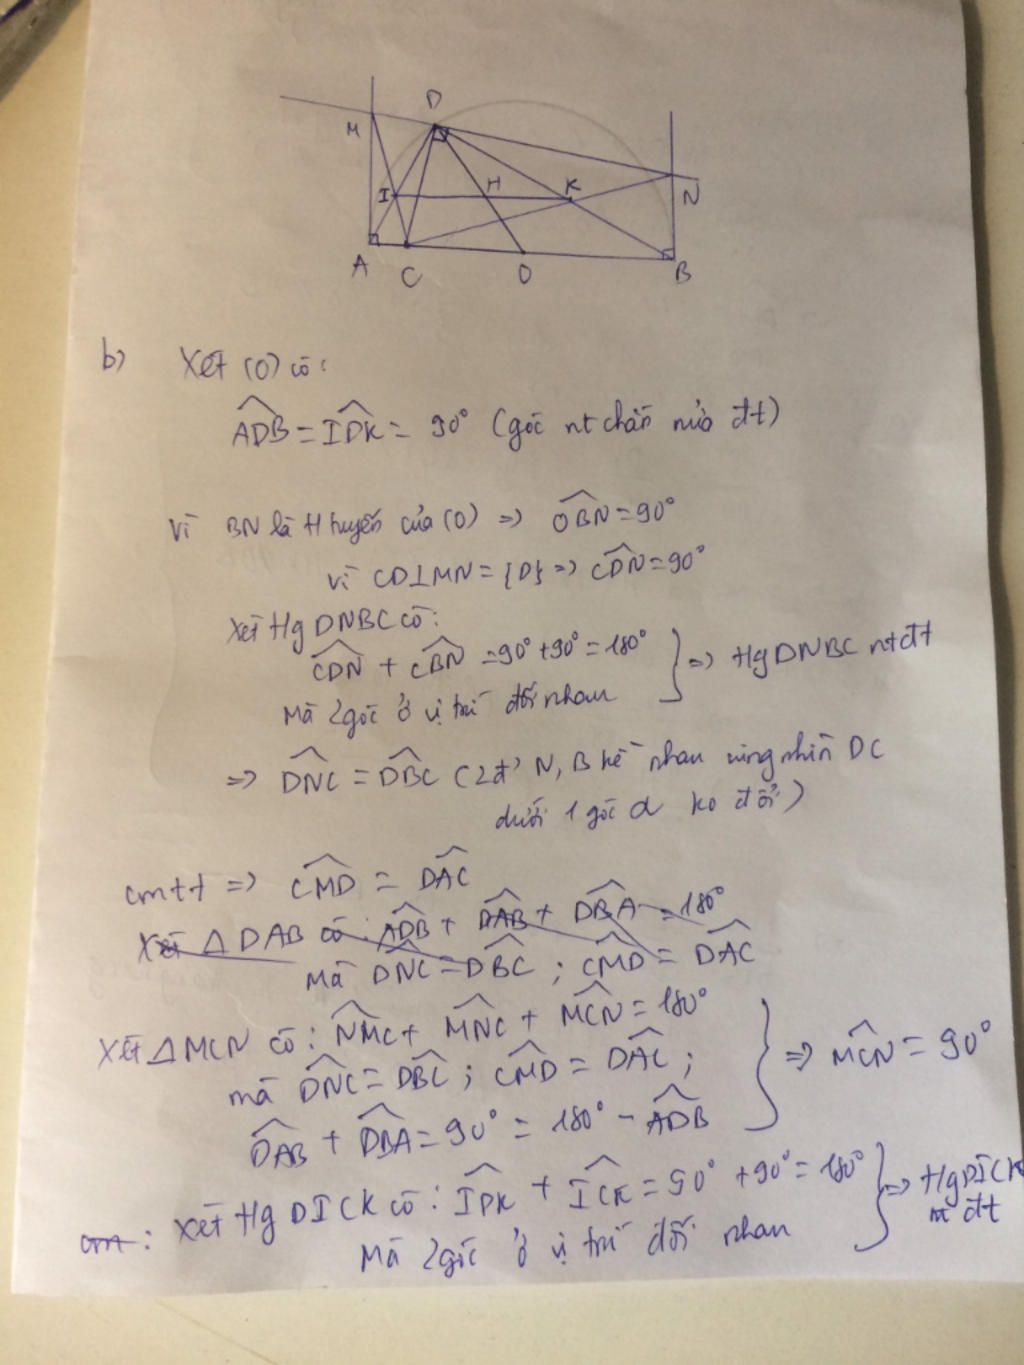 D
M
I H K N
A C O B
b) Xét (O) có:
ADB = IDK = 90° (góc nt chắn nửa đt)
Vì BN là tt tuyến của (O) => OBN = 90°
Vì CD⊥MN = {D} => CDN = 90°
Xét Hg DNBC có:
CDN + CBN = 90° + 90° = 180°
Mà 2 góc ở vị trí đối nhau } => Hg DNBC nt đt
=> DNC = DBC (2 đ' N, B kề nhau cùng nhìn DC
dưới 1 góc α ko đổi)
cmtt => CMD = DAC
Xét △DAB có: ADB + DAB + DBA = 180°
Mà DNC = DBC ; CMD = DAC
Xét △MCN có: NMC + MNC + MCN = 180°
mà DNC = DBC ; CMD = DAC ; } => MCN = 90°
DAB + DBA = 90° = 180° - ADB
cm: Xét Hg DICK có: IDK + ICK = 90° + 90° = 180° } => Hg DICK
Mà 2 góc ở vị trí đối nhau nt đt